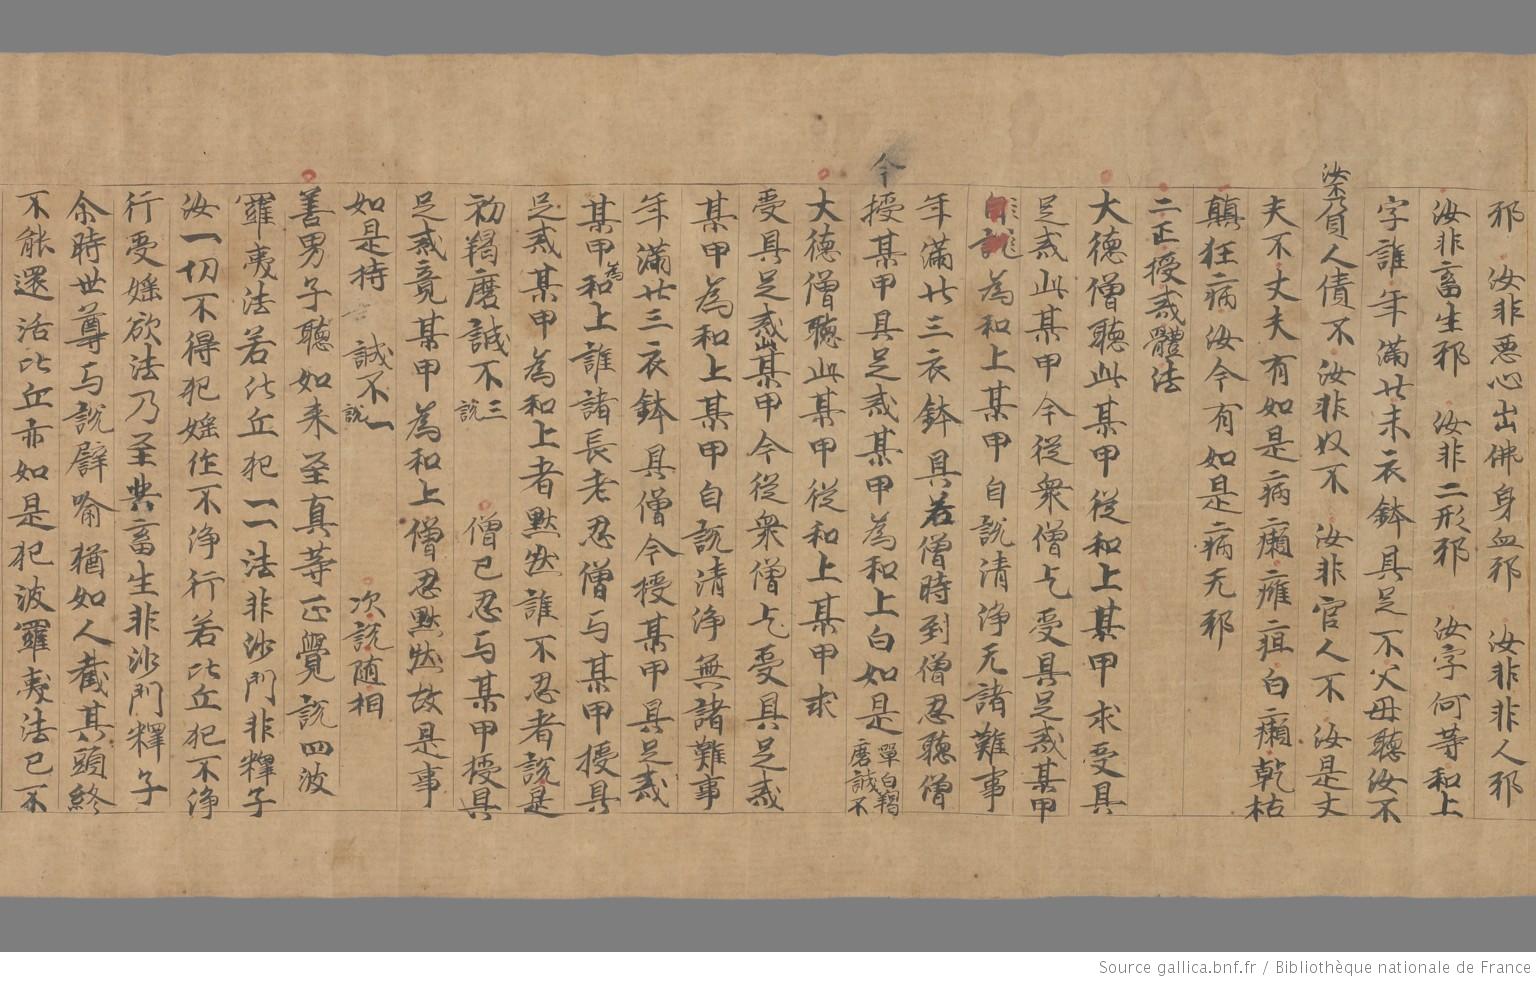 邪 汝非惡心出佛身血邪 汝非非人邪
汝非畜生邪 汝非二形邪 汝字何等和上
字誰年滿廿未衣鉢具足不父母聽汝不
汝不負人債不 汝非奴不 汝非官人不 汝是丈
夫不丈夫有如是病癩癰疽白癩乾枯
顛狂病汝今有如是病无邪
二正授戒體法
大德僧聽此某甲從和上某甲求受具
足戒此某甲今從衆僧乞受具足戒某甲
為和上某甲自說清淨无諸難事
年滿廿三衣鉢具若僧時到僧忍聽僧
今授某甲具足戒某甲為和上白如是 單白羯磨誠不
大德僧聽此某甲從和上某甲求
受具足戒此某甲今從衆僧乞受具足戒
某甲為和上某甲自說清淨無諸難事
年滿廿三衣鉢具僧今授某甲具足戒
某甲為和上誰諸長老忍僧与某甲授具
足戒某甲為和上者默然誰不忍者說是
初羯磨誠不 三說 僧已忍与某甲授具
足戒竟某甲為和上僧忍默然故是事
如是持 誠不 一說 次說隨相
善男子聽如来至真等正覺說四波
羅夷法若比丘犯一一法非沙門非釋子
汝一切不得犯婬作不淨行若比丘犯不淨
行受婬欲法乃至共畜生非沙門釋子
尒時世尊与說譬喻猶如人截其頭終
不能還活比丘亦如是犯波羅夷法已不
Source gallica.bnf.fr / Bibliothèque nationale de France